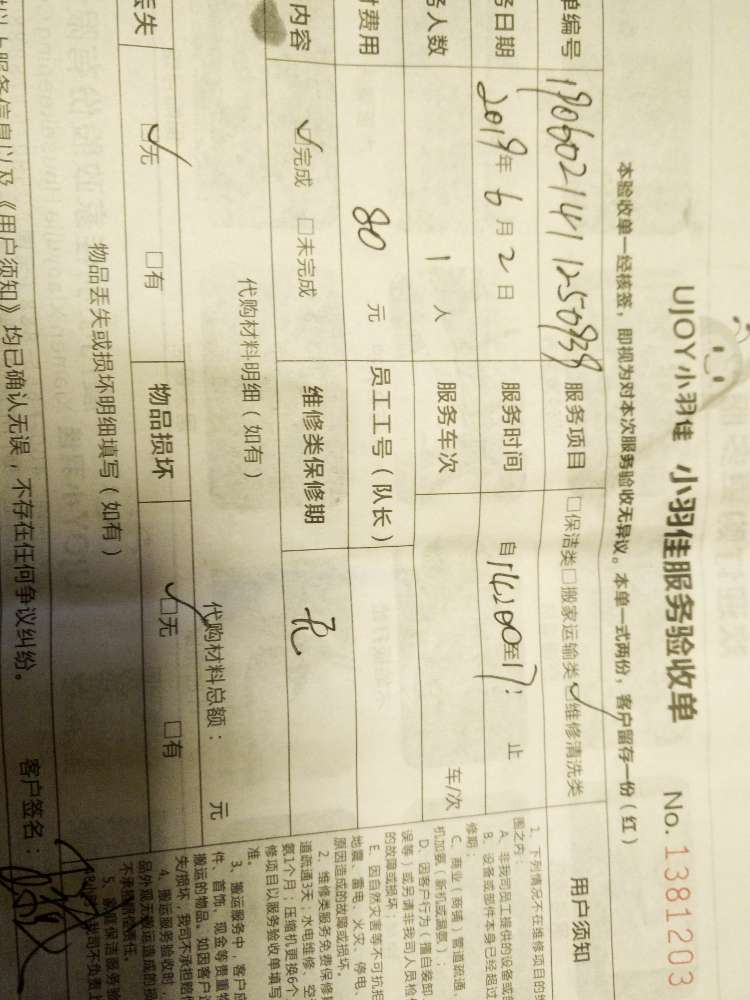 UJOY小羽佳 小羽佳服务验收单 No. 1381203
本验收单一经核签，即视为对本次服务验收无异议。本单一式两份，客户留存一份（红）
单编号 服务项目 □保洁类□搬家运输类 ✓维修清洗类
日期 2019年6月2日 服务时间 自14:00至17: 止
人数 1 人 服务车次 车/次
费用 80 元 员工工号（队长）
内容 ✓完成 □未完成 维修类保修期 无
代购材料明细（如有） 代购材料总额： 元
丢失 ✓无 □有 物品损坏 ✓□无 □有
物品丢失或损坏明细填写（如有）
服务信息以及《用户须知》均已确认无误，不存在任何争议纠纷。
客户签名：
用户须知
1、下列情况不在维修项目的
围之内：
A、非我司员工提供的设备或
B、设备或部件本身已经超过
修期；
C、商业（商铺）管道疏通、
机加氨（新机或漏氨）；
D、因客户行为（擅自装卸、
误等）或另请非我司人员检
的故障或损坏；
E、因自然灾害等不可抗
地震、雷电、火灾、停电、
原因造成的故障或损坏。
2、维修类服务免费保修
道疏通3天；水电维修、空
氨1个月；压缩机更换6个
修项目以服务验收单填写
准。
3、搬运服务中，客户应
件、首饰、现金等贵重物
搬运的物品。如因客户
失/损坏，我司不承担赔
4、搬运服务验收时，
品外观无搬运造成的
不承担赔偿责任。
5、家庭保洁服务